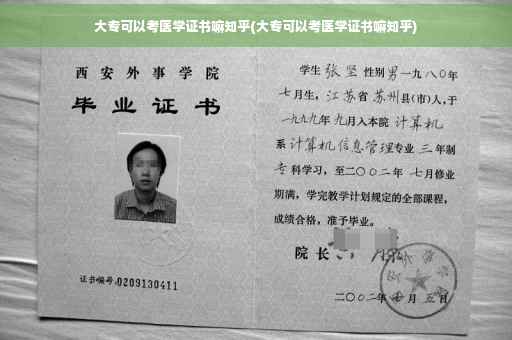 大专可以考医学证书嘛知乎(大专可以考医学证书嘛知乎)
西安外事学院
毕业证书
证书编号:0209130411
学生 张坚 性别 男 一九八〇年
七月生, 江苏省 苏州县(市)人,于
一九九九年 九月入本院 计算机
系 计算机信息管理专业 三 年制
专 科学习,至二〇〇二年 七月修业
期满,学完教学计划规定的全部课程,
成绩合格,准予毕业。
院长
二〇〇二年 月 五日